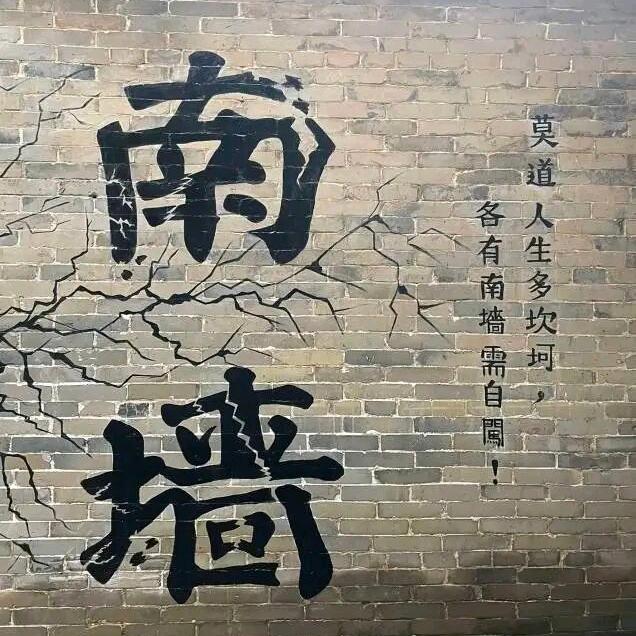 南墙
莫道人生多坎坷，
各有南墙需自闯！